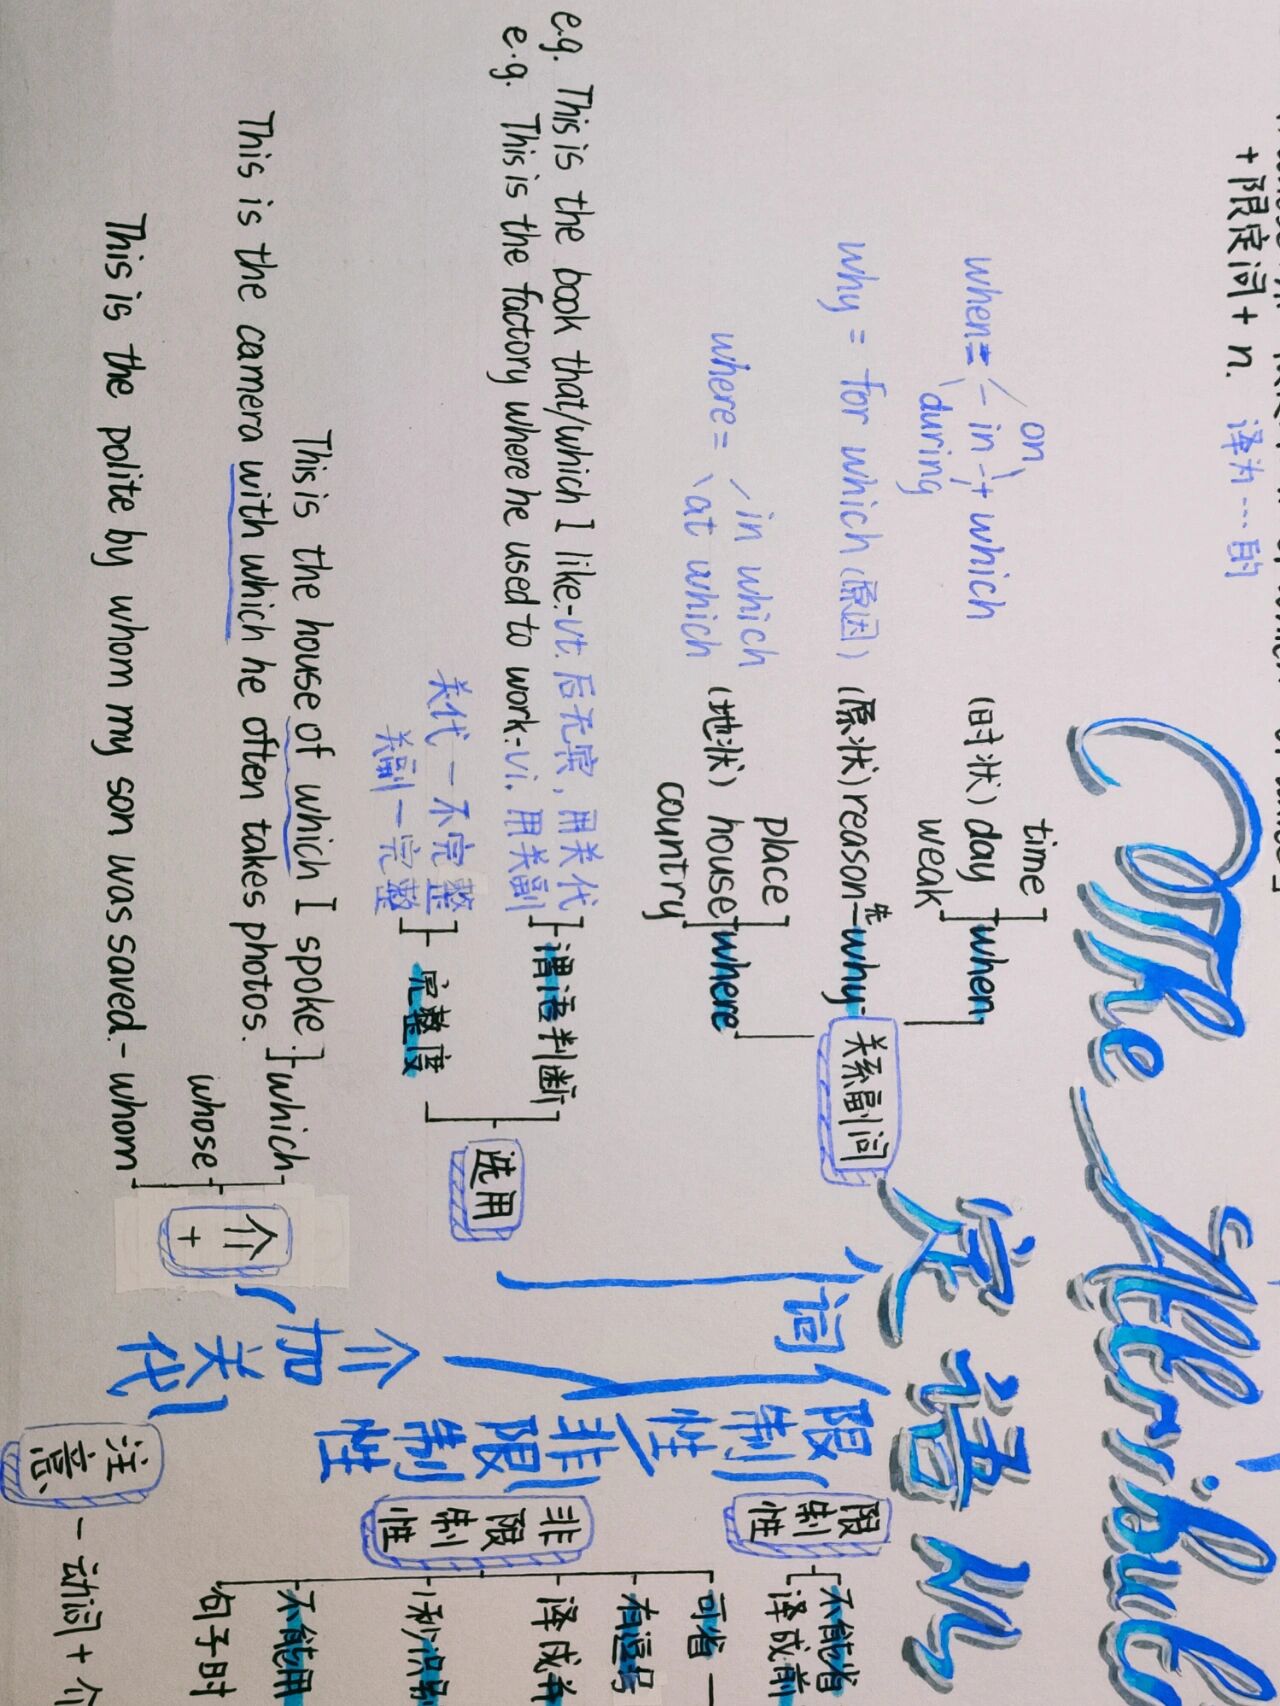 +限定词+n. 译为…的
The Attribut
定语从
time
when= on in during + which (时状) day when
weak
why = for which (原因) (原状) reason 先 why
关系副词
place
where= in which at which (地状) house where
country
e.g. This is the book that/which I like.-vt.后无宾,用关代
e.g. This is the factory where he used to work.-vi.用关副
谓语判断
关代一不完整
关副一完整
完整度
选用
This is the house of which I spoke.
This is the camera with which he often takes photos.
which
whose
This is the polite by whom my son was saved.-whom
介+
词
介加关代
限制性/非限制性
限制性
不能省
译成前
非限制性
可省一
有逗号
译成并
1秒识别
不能用
句子时
注意
一动词+介